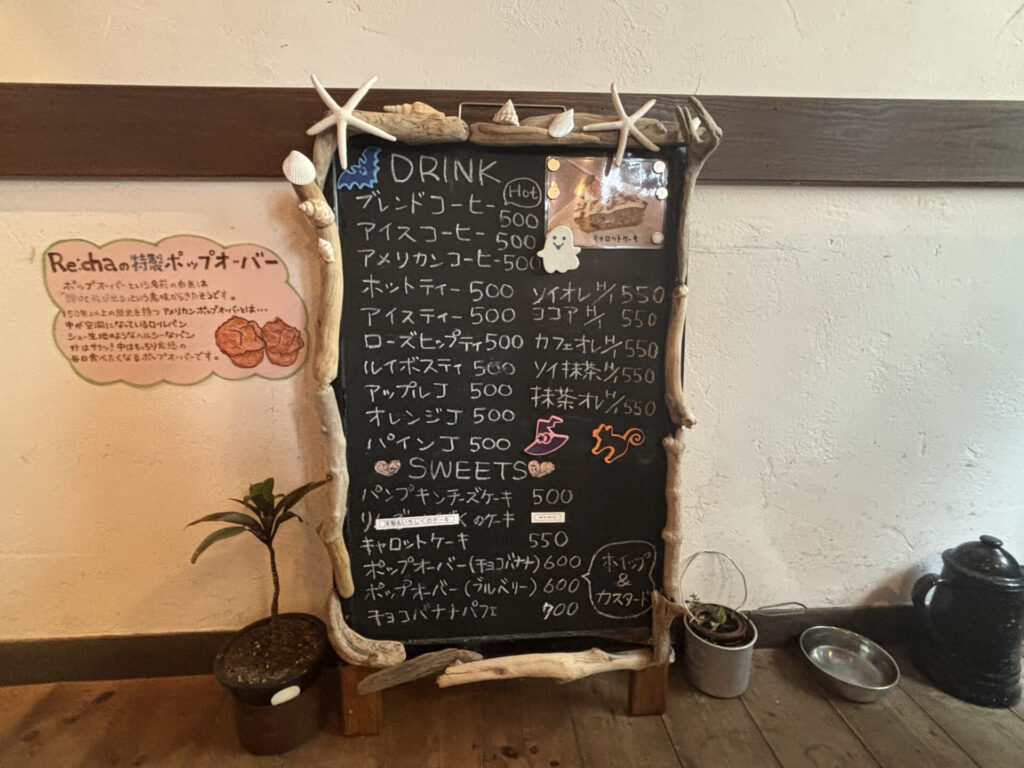 Re:chaの特製ポップオーバー
ポップオーバーという名前の由来は
という意味からきたそうです。
150年以上の歴史を持つアメリカンポップオーバーとは…
中が空洞になっているロールパン
シュー生地のようなヘルシーなパン
外はサクッ!中はもっちり食感の
毎日食べたくなるポップオーバーです。
DRINK
Hot
ブレンドコーヒー 500
アイスコーヒー 500
アメリカンコーヒー 500
キャロットケーキ
ホットティー 500
アイスティー 500
ローズヒップティ 500
ルイボスティ 500
アップルJ 500
オレンジJ 500
パインJ 500
ソイオレH/I 550
ココアH/I 550
カフェオレH/I 550
ソイ抹茶H/I 550
抹茶オレH/I 550
SWEETS
パンプキンチーズケーキ 500
洋梨&いちじくのケーキ
のケーキ
キャロットケーキ 550
ポップオーバー(チョコバナナ) 600
ポップオーバー(ブルベリー) 600
チョコバナナパフェ 700
ホイップ
&
カスタード